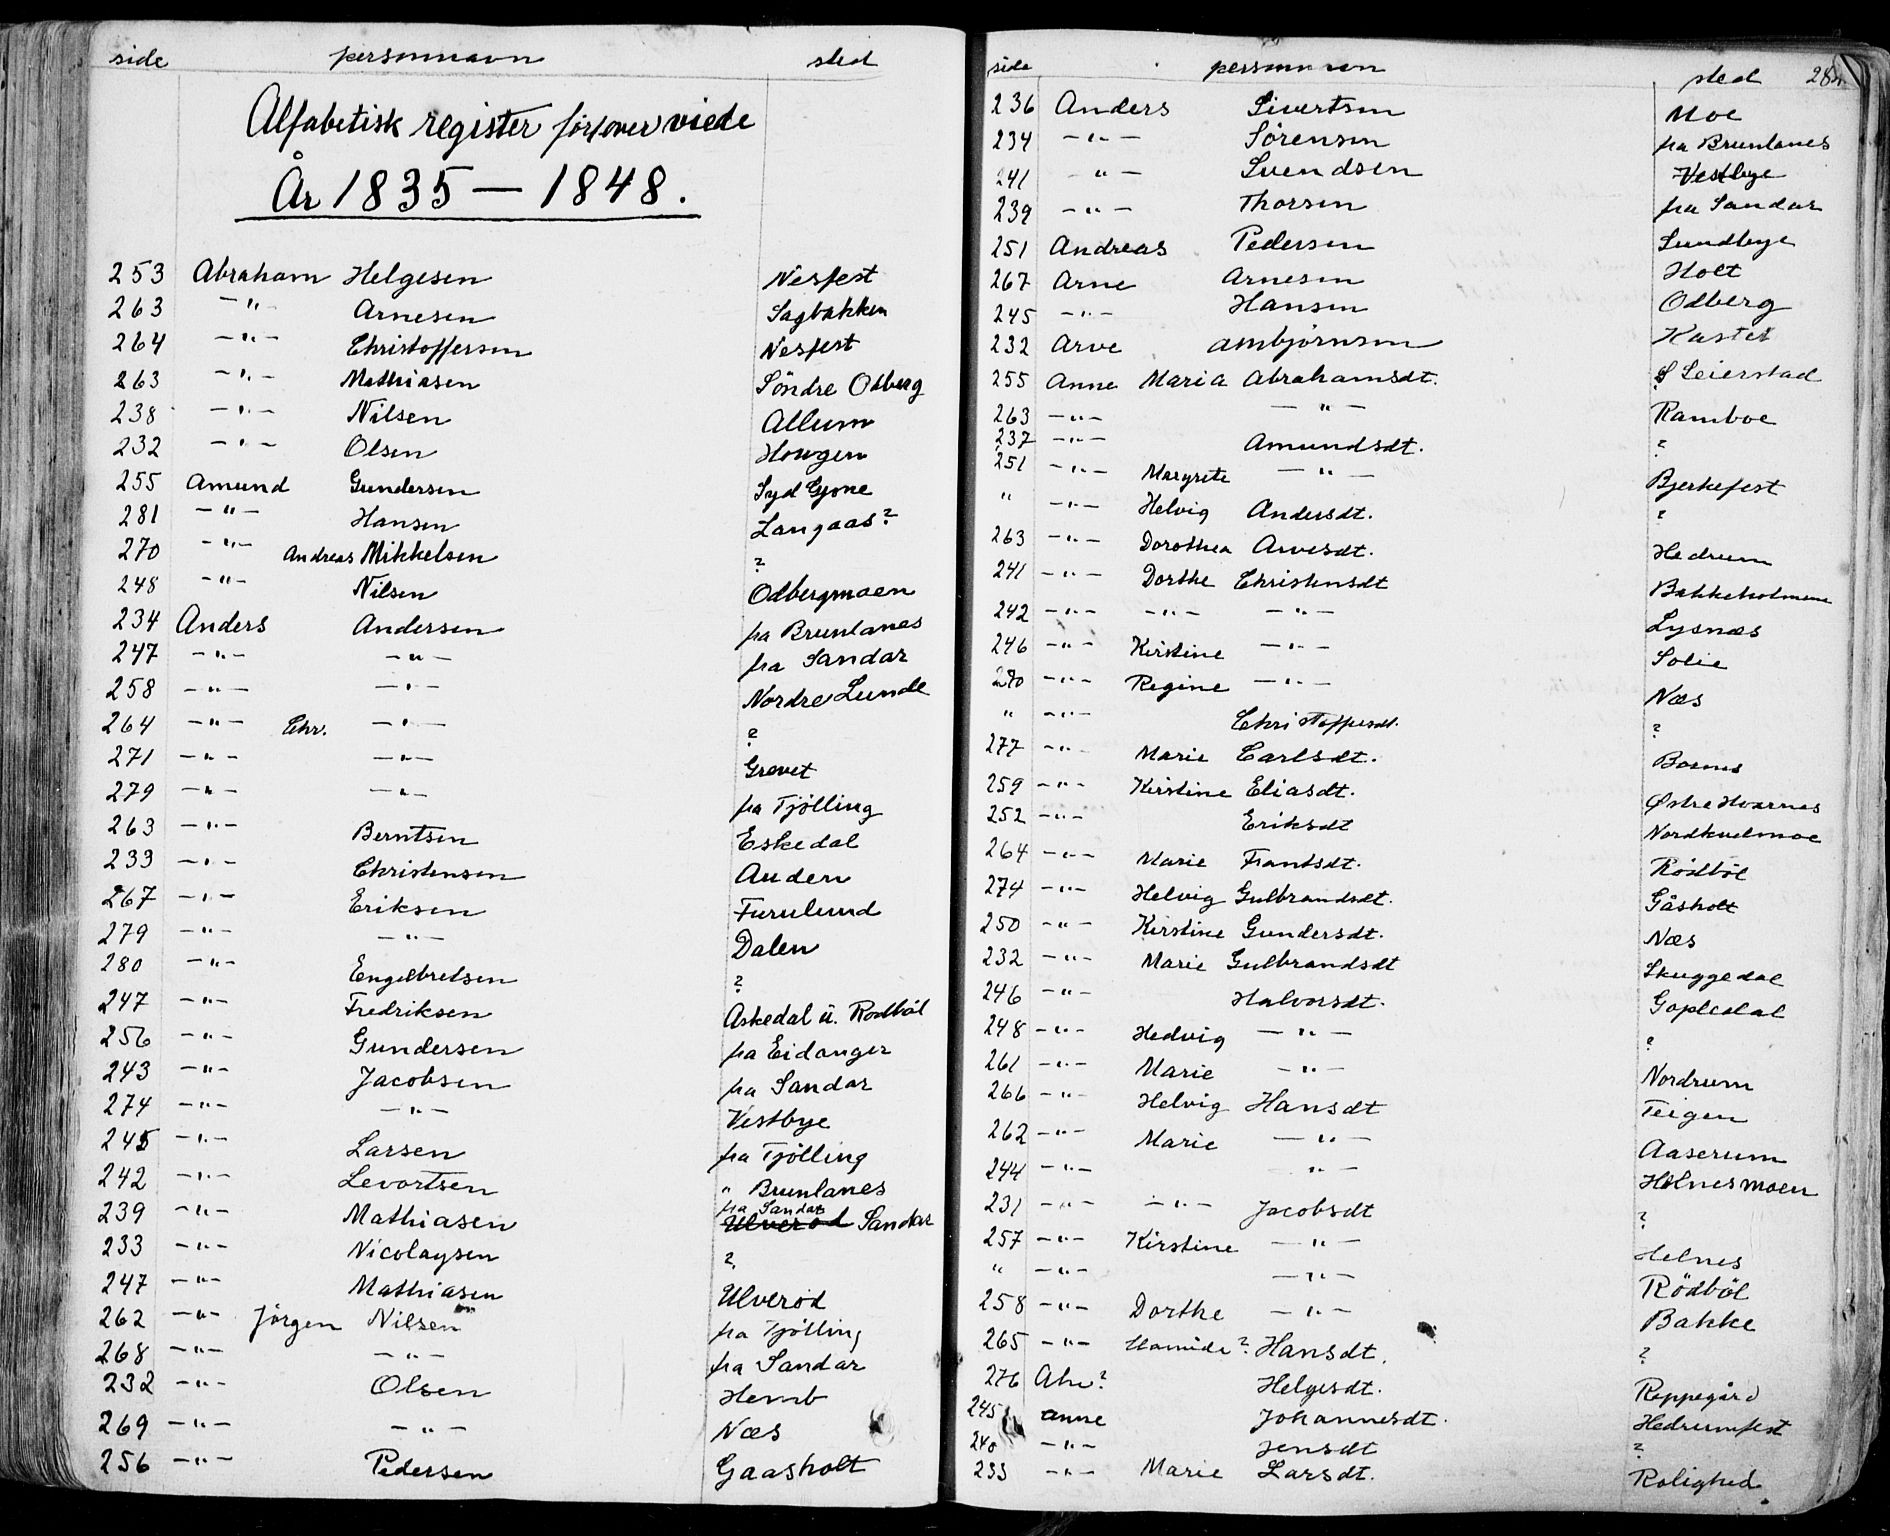 side personnavn sted
Alfabetisk register for over viede
År 1835 — 1848.
253 Abraham Helgesen Nesfest
263 —"— Arnesen Sagbakken
264 —"— Christoffersen Nesfest
263 —"— Mathiasen Söndre Odberg
238 —"— Nilsen Allum
232 —"— Olsen Hougen
255 Amund Gundersen Syd Gjone
281 —"— Hansen Langaas?
270 —"— Andreas Mikkelsen ?
248 —"— Nilsen Odbergmoen
234 Anders Andersen fra Brunlanes
247 —"— —"— fra Sandar
258 —"— —"— Nordre Lunde
264 —"— Chr. —"— ?
271 —"— —"— Grevet
279 —"— —"— fra Tjölling
263 —"— Berntsen Eskedal
233 —"— Christensen Auden
267 —"— Eriksen Furulund
279 —"— —"— Dalen
280 —"— Engelbretsen ?
247 —"— Fredriksen Askedal u. Rodböl
256 —"— Gundersen fra Eidanger
243 —"— Jacobsen fra Sandar
274 —"— —"— Vestbye
245 —"— Larsen fra Tjölling
242 —"— Levortsen " Brunlanes
239 —"— Mathiasen fra Sandar Ulverod Sandar
233 —"— Nicolaysen ?
247 —"— Mathiasen Ulverod
262 —"— Jörgen Nilsen fra Tjölling
268 —"— —"— fra Sandar
232 —"— Olsen Hemb
269 —"— —"— Næs
256 —"— Pedersen Gaasholt
side personnavn sted
236 Anders Sivertsen Moe
234 —"— Sörensen fra Brunlanes
241 —"— Svendsen Vestbye
239 —"— Thorsen fra Sandar
251 Andreas Pedersen Sundbye
267 Arne Arnesen Holt
245 —"— Hansen Odberg
232 Arve Ambjörnsen Kastet
255 Anne Maria Abrahamsdt. S Seierstad
263 —"— —"— Ramboe
237 —"— Amundsdt. ?
251 —"— Margrete —"— Bjerkefest
" —"— Helvig Andersdt. ?
263 —"— Dorothea Arvesdt. Hedrum
241 —"— Dorthe Christensdt Bakkeholmene
242 —"— —"— —"— Lysnæs
246 —"— Kirstine —"— Solie
270 —"— Regine —"— Næs
" —"— Christoffersdt. ?
277 —"— Marie Carlsdt.
259 —"— Kirstine Eliasdt. Østre Hvarnes
252 —"— Eriksdt Nordkvelmoe
264 —"— Marie Frantsdt. Rödböl
274 —"— Helvig Gulbrandsdt. Gåsholt
250 —"— Kirstine Gundersdt. Næs
232 —"— Marie Gulbrandsdt Skuggedal
246 —"— Halvorsdt. Gopledal
248 —"— Hedvig —"— ?
261 —"— Marie —"— Nordrum
266 —"— Helvig Hansdt Teigen
262 —"— Marie —"— Aaserum
244 —"— —"— Holnesmoen
231 —"— —"— Jacobsdt ?
257 —"— Kirstine —"— Helnes
" —"— —"— Rödböl
258 —"— Dorthe —"— Bakke
265 —"— Hansdt. ?
276 Helgesdt. Roppegård
245 Anne Johannesdt. Hedrumfest
240 —"— Jensdt ?
233 —"— Marie Larsdt. Rolighed